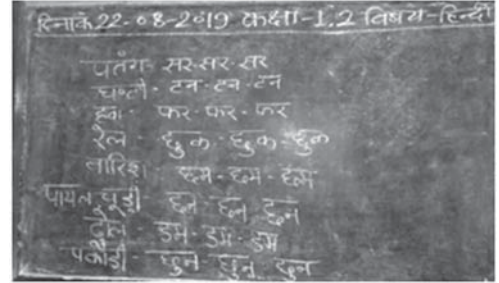 दिनांक 22-08-2019 कक्षा-1,2 विषय-हिन्दी
पतंग- सर-सर-सर
घण्टी- टन-टन-टन
हवा- फर-फर-फर
रेल- छुक-छुक-छुक
बारिश- छम-छम-छम
पायल, चूड़ी छन छन छन
ढोल- डम-डम-डम
पकौड़ी- छुन-छुन छुन